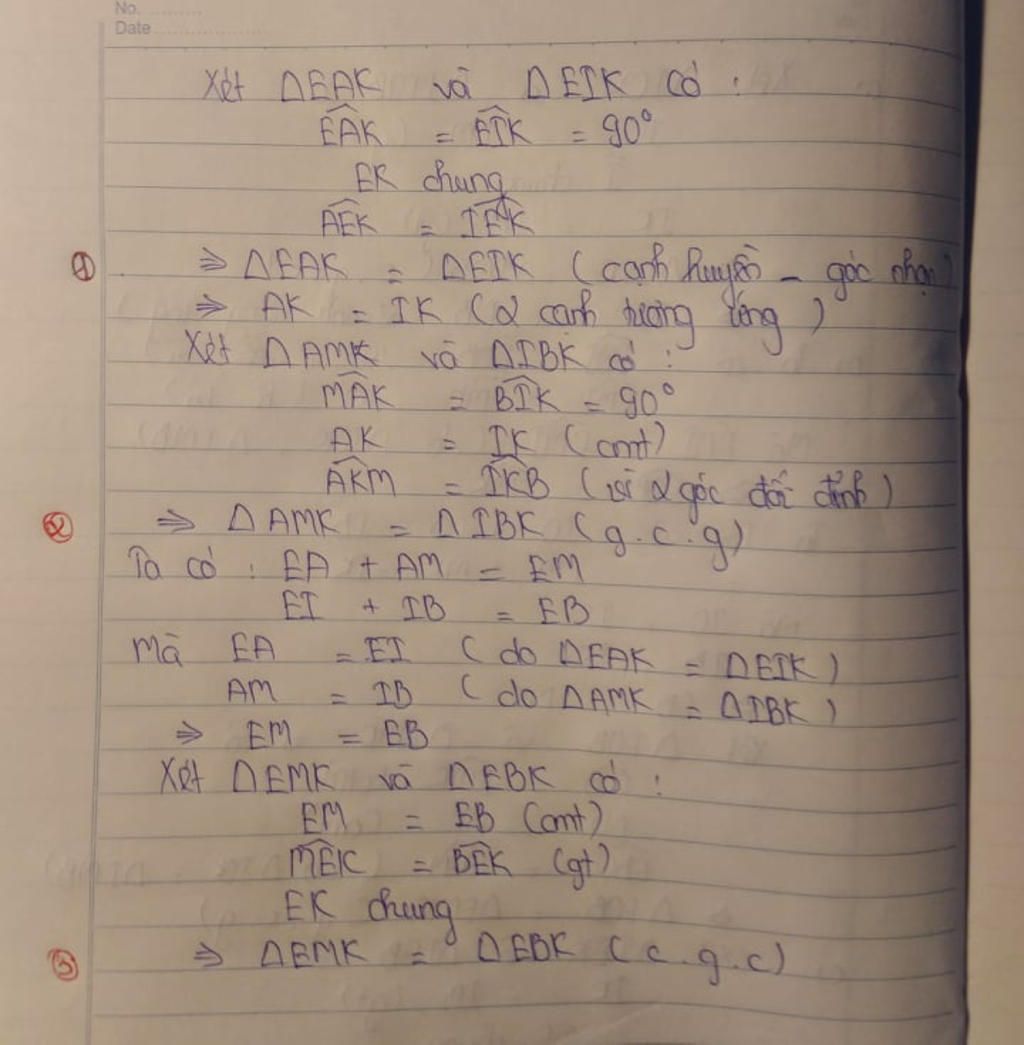 No. ............
Date ......................
Xét ΔEAK và ΔEIK có :
$\widehat{EAK}$ = $\widehat{EIK}$ = 90°
EK chung
$\widehat{AEK}$ = $\widehat{IEK}$
① ⇒ ΔEAK = ΔEIK ( cạnh huyền - góc nhọn )
⇒ AK = IK (2 cạnh tương ứng )
Xét ΔAMK và ΔIBK có :
$\widehat{MAK}$ = $\widehat{BIK}$ = 90°
AK = IK (cmt)
$\widehat{AKM}$ = $\widehat{IKB}$ (vì 2 góc đối đỉnh )
② ⇒ ΔAMK = ΔIBK ( g.c.g)
Ta có : EA + AM = EM
EI + IB = EB
Mà EA = EI ( do ΔEAK = ΔEIK )
AM = IB ( do ΔAMK = ΔIBK )
⇒ EM = EB
Xét ΔEMK và ΔEBK có :
EM = EB (cmt)
$\widehat{MEK}$ = $\widehat{BEK}$ (gt)
EK chung
③ ⇒ ΔEMK = ΔEBK ( c.g.c)